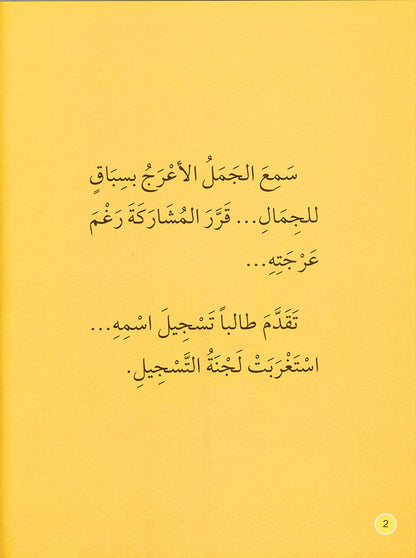 سَمِعَ الجَمَلُ الأعْرَجُ بسِبَاقٍ
للجِمَالِ... قَرَّرَ المُشَارَكَةَ رَغْمَ
عَرْجَتِهِ...
تَقَدَّمَ طالباً تَسْجِيلَ اسْمِهِ...
اسْتَغْرَبَتْ لَجْنَةُ التَّسْجِيلِ.
2